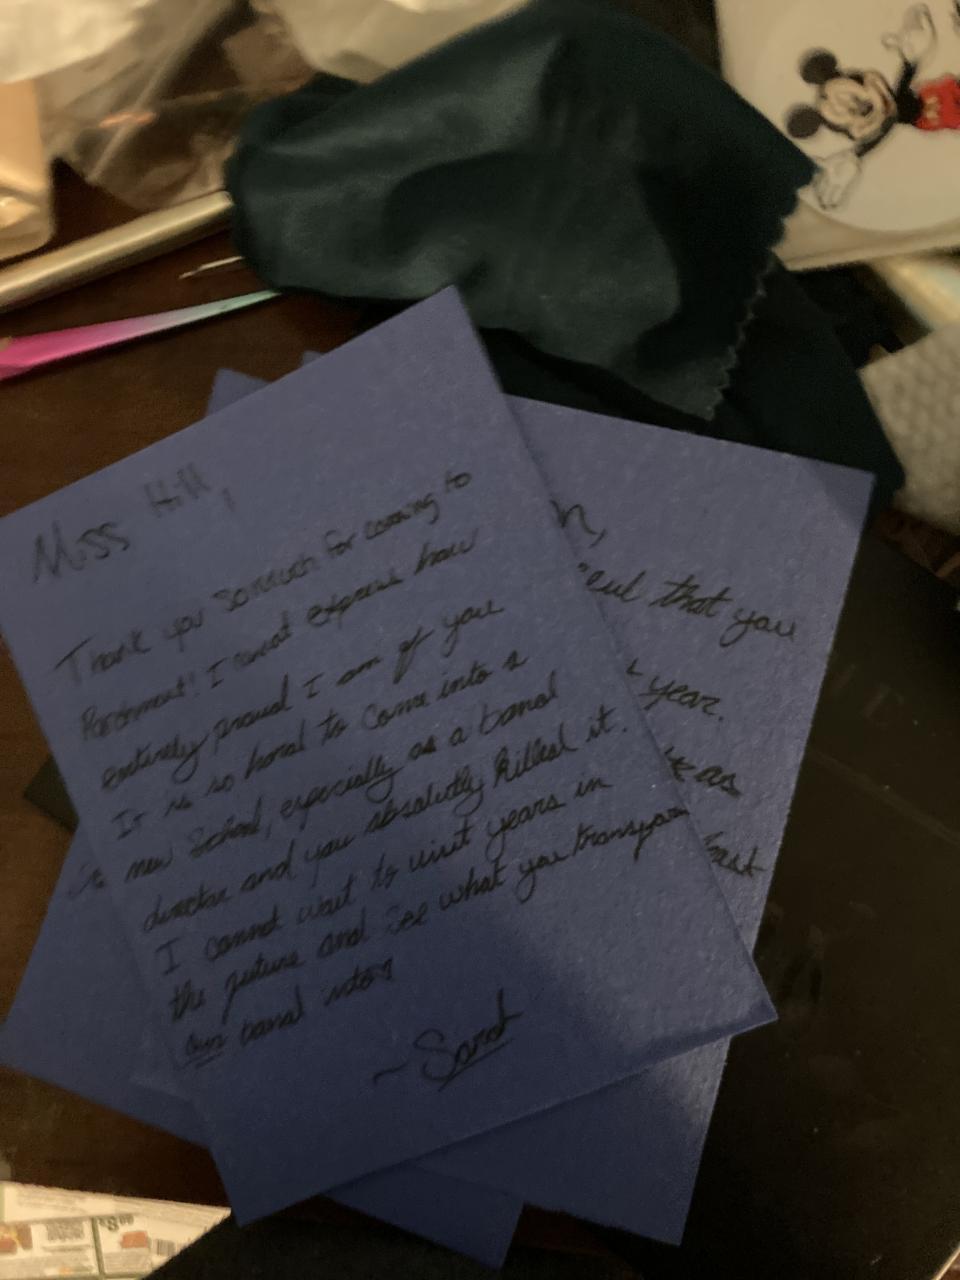 Miss Hill,
Thank you so much for coming to
Parchment! I cannot express how
entirely proud I am of you
It is so hard to come into a
new School, especially as a band
director and you absolutely killed it.
I cannot wait to visit years in
the future and see what you transform
our band into!
~ Sarah
that you
year.
as